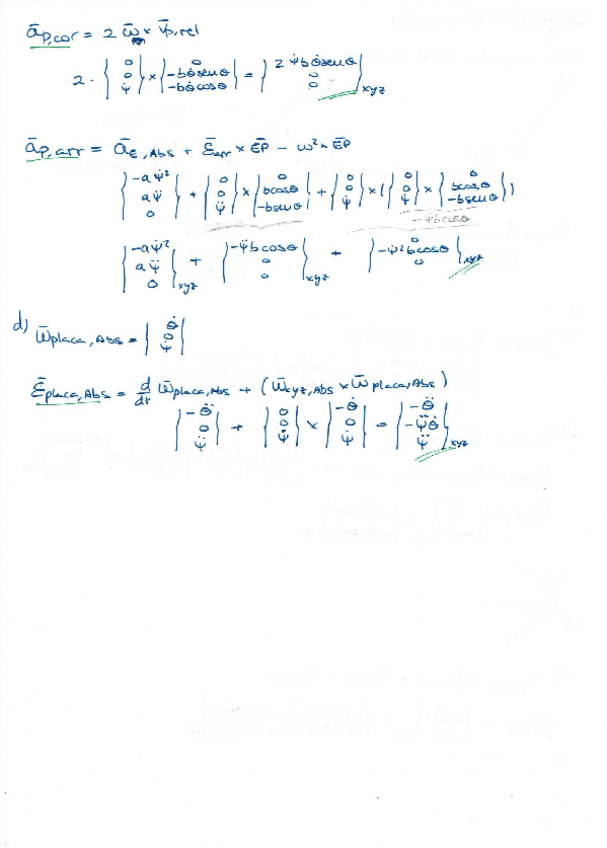 āP,cor = 2 ω̄ × v̄P,rel
2 · {0 0 ψ̇} × {0 -bθ̇senθ -bθ̇cosθ} = {2ψ̇bθ̇senθ 0 0}xyz
āP,arr = āE,Abs + ε̄arr × EP̄ - ω² × EP̄
{-aψ̇² aψ̈ 0} + {0 0 ψ̈} × {0 bcosθ -bsenθ} + {0 0 ψ̇} × ({0 0 ψ̇} × {0 bcosθ -bsenθ})
-ψ̇bcosθ
{-aψ̇² aψ̈ 0}xyz + {-ψ̈bcosθ 0 0}xyz + {0 -ψ̇²bcosθ 0}xyz
d) ω̄placa,Abs = {θ̇ 0 ψ̇}
ε̄placa,Abs = d/dt ω̄placa,Abs + (ω̄xyz,Abs × ω̄placa,Abs)
{-θ̈ 0 ψ̈} + {0 0 ψ̇} × {-θ̇ 0 ψ̇} = {-θ̈ -ψ̇θ̇ ψ̈}xyz